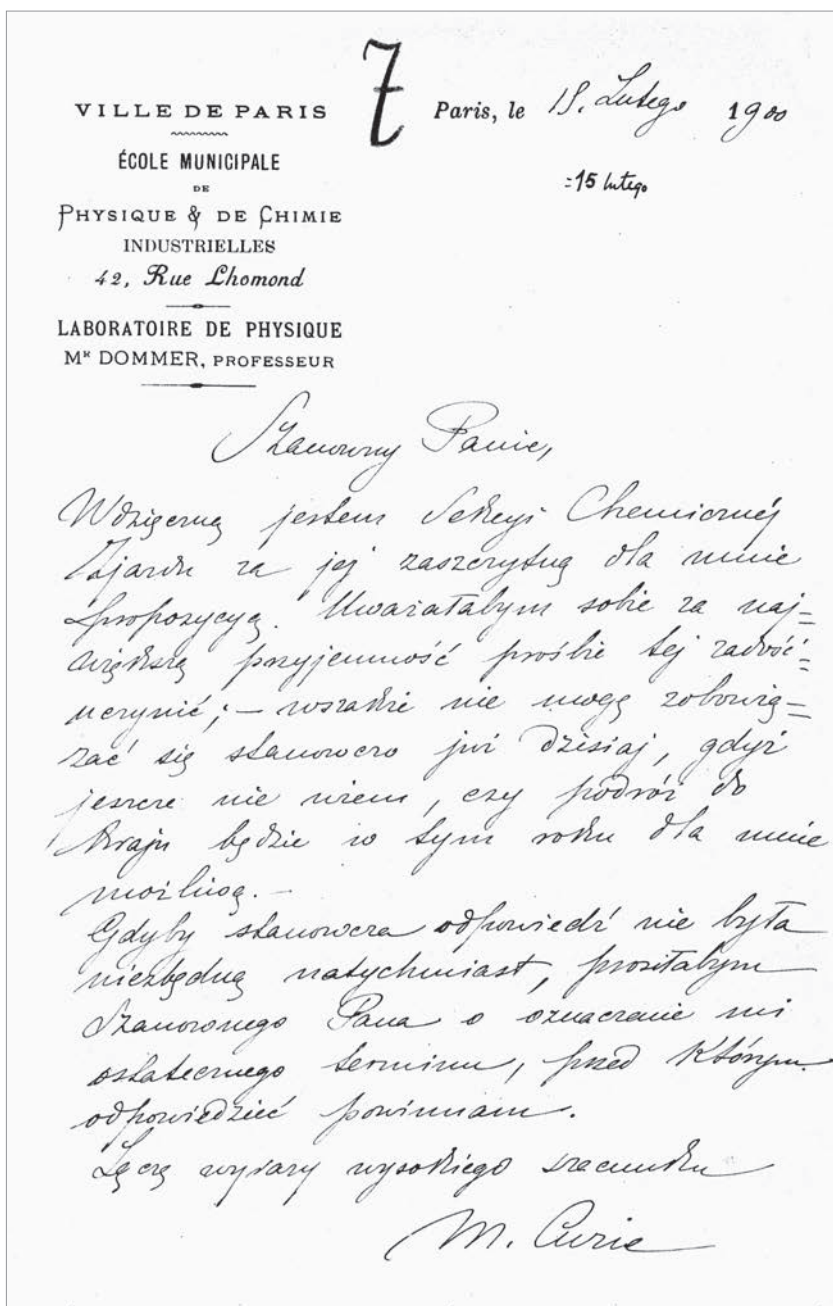 7
VILLE DE PARIS
ÉCOLE MUNICIPALE
DE
PHYSIQUE & DE CHIMIE
INDUSTRIELLES
42, Rue Lhomond
LABORATOIRE DE PHYSIQUE
Mᴿ DOMMER, PROFESSEUR
Paris, le 15. Lutego 1900
=15 lutego
Szanowny Panie,
Wdzięczną jestem Sekcyi Chemicznéj
Zjazdu za jej zaszczytną dla mnie
propozycyą. Uważałabym sobie za naj=
większą przyjemność prośbie tej zadość=
uczynić; – wszakże nie mogę zobowią=
zać się stanowczo już dzisiaj, gdyż
jeszcze nie wiem, czy podróż do
kraju będzie w tym roku dla mnie
możliwą. –
Gdyby stanowcza odpowiedź nie była
niezbędną natychmiast, prosiłabym
Szanownego Pana o oznaczenie mi
ostatecznego terminu, przed którym
odpowiedzieć powinnam.
Łączę wyrazy wysokiego szacunku
M. Curie